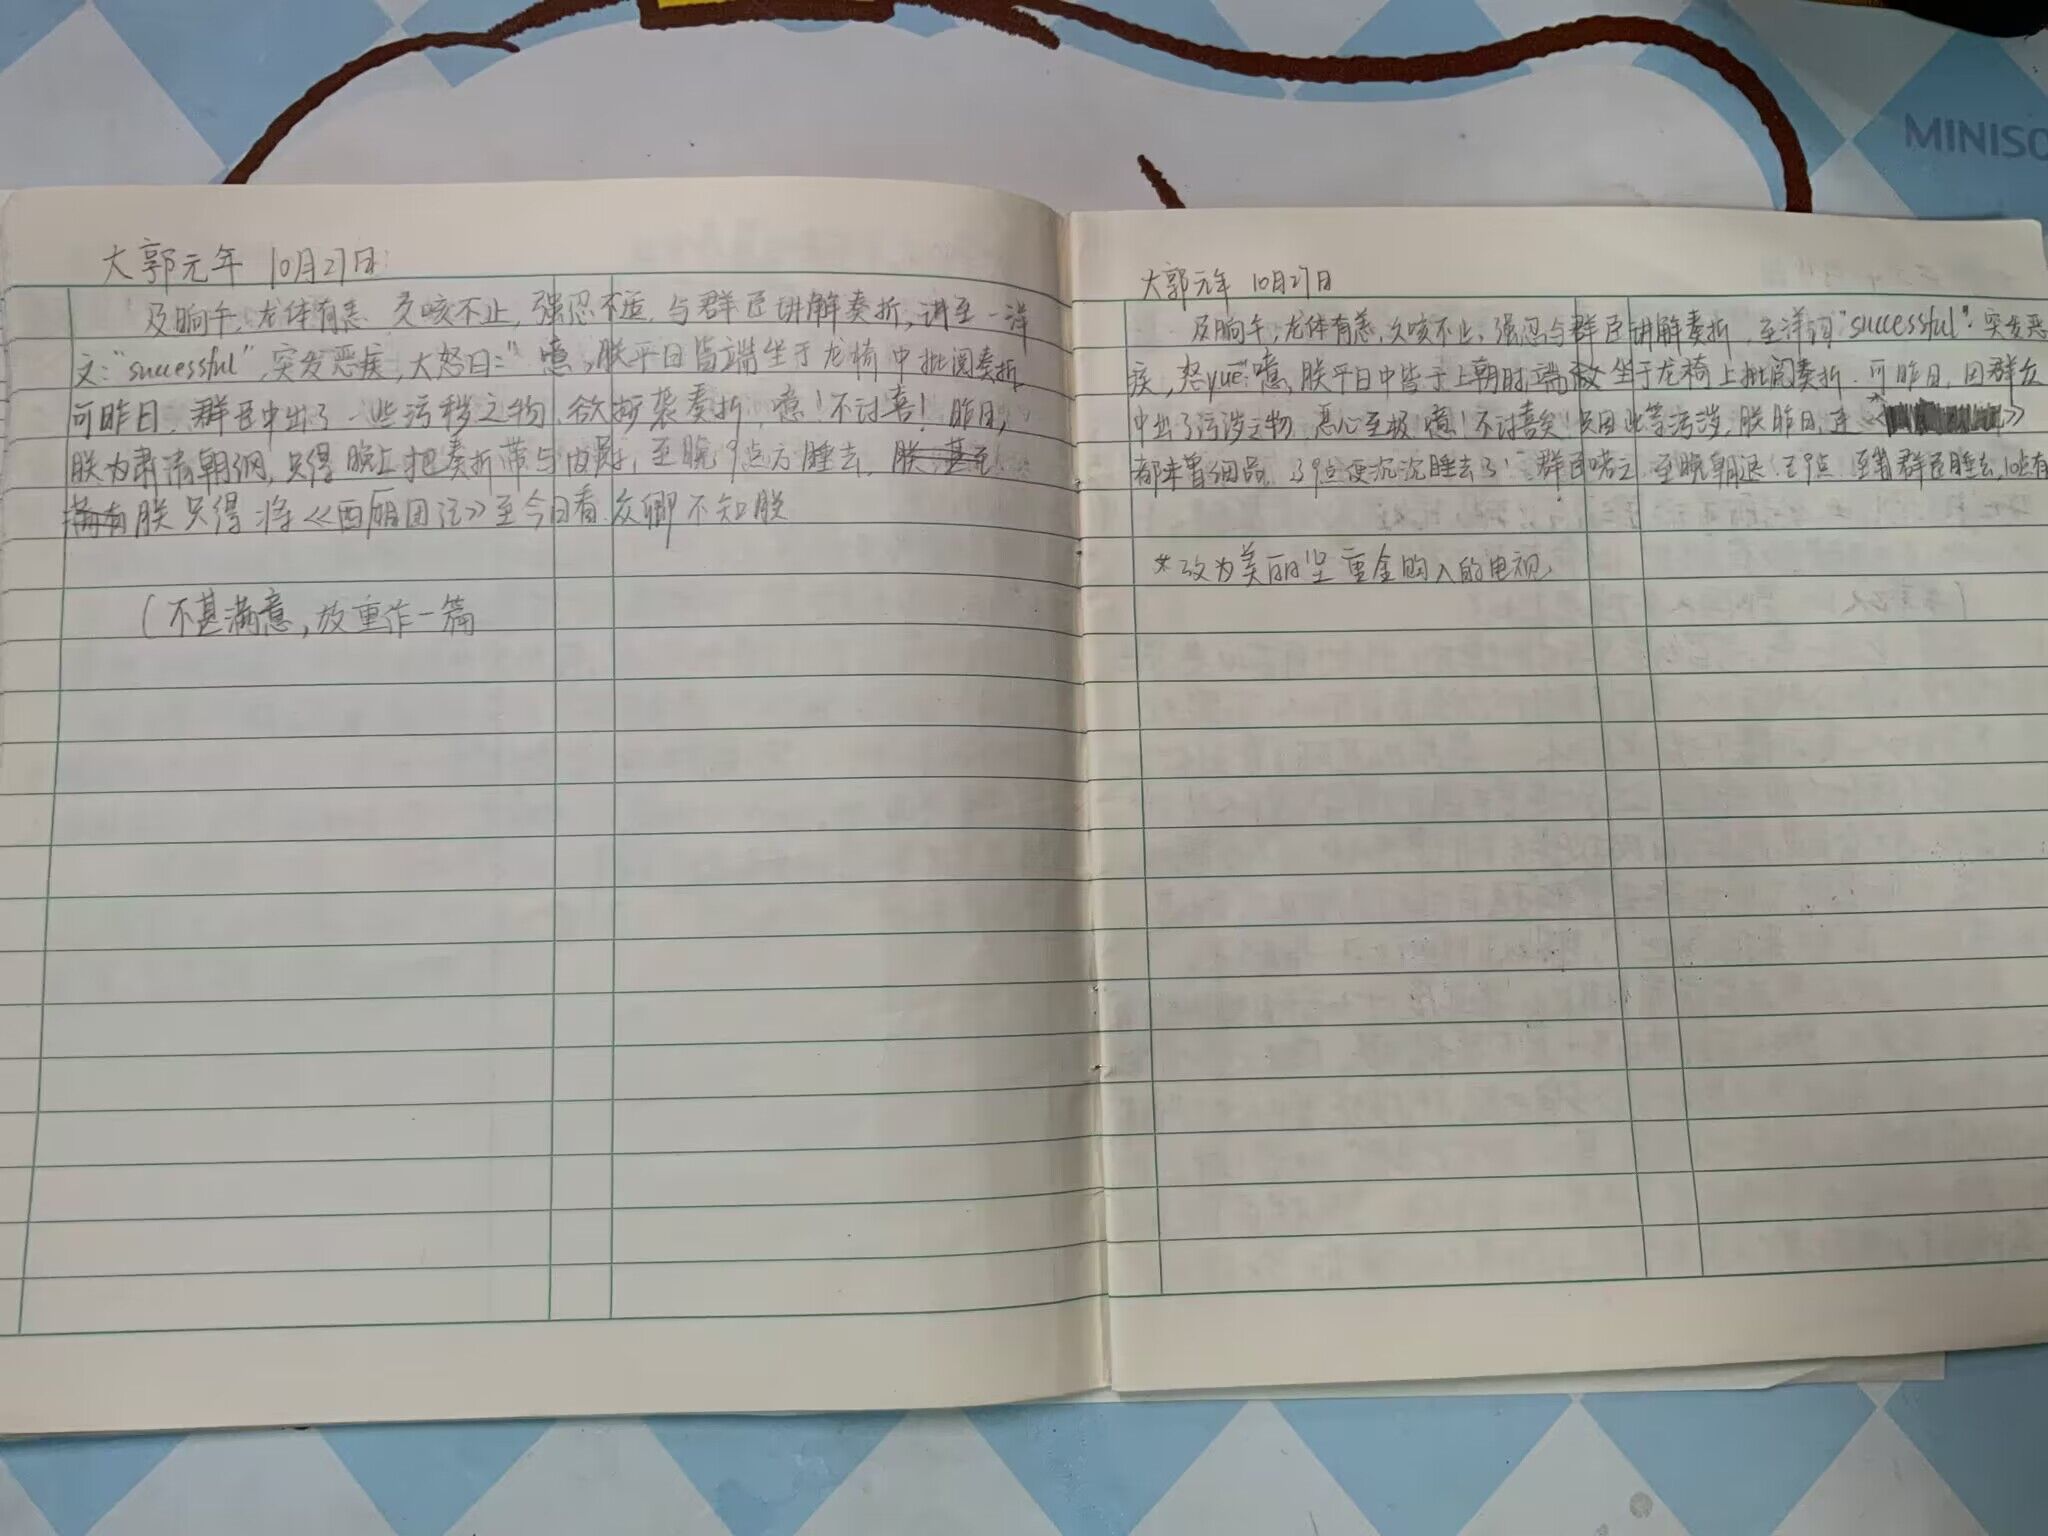 MINISO
大郭元年 10月27日
及晌午，龙体有恙，久咳不止，强忍不适，与群臣讲解奏折，讲至一洋
文："successful"，突发恶疾，大怒曰："噫，朕平日皆端坐于龙椅中批阅奏折，
可昨日，群臣中出了一些污秽之物，欲抄袭奏折，噫！不讨喜！昨日，
朕为肃清朝纲，只得晚上把奏折带与，至晚9点方睡去，朕甚至
满有朕只得将《西厢记》至今日看，众卿不知朕
（不甚满意，故重作一篇
大郭元年 10月27日
及晌午，龙体有恙，久咳不止，强忍与群臣讲解奏折，至洋词"successful"，突发恶
疾，怒yue：噫，朕平日中皆于上朝时端坐于龙椅上批阅奏折，可昨日，因群众
中出了污涉之物，恶心至极，噫！不讨喜矣！只因此等污涉，朕昨日，连《》
都未曾细品，9点便沉沉睡去了！群臣喏之，至晚朝退，已9点，至群臣睡去，10点有
*改为美丽坚重金购入的电视